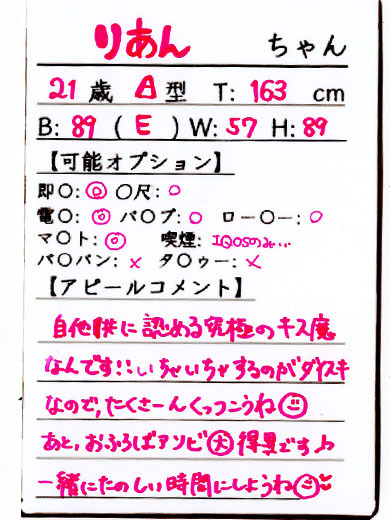 りあん ちゃん
21 歳 A 型 T: 163 cm
B: 89 ( E ) W: 57 H: 89
【可能オプション】
即〇: ◎ 〇尺: ○
電〇: ◎ バ〇ブ: ○ ロー〇ー: ○
マ〇ト: ◎ 喫煙: IQOSのみ...
パ〇パン: × タ〇ゥー: ×
【アピールコメント】
自他供に認める究極のキス魔
なんです!!いちゃいちゃするのがダイスキ
なので,たくさーんくっつこうね☺
あと,おふろばアソビ大得意です♪
一緒にたのしい時間にしようね☺♥